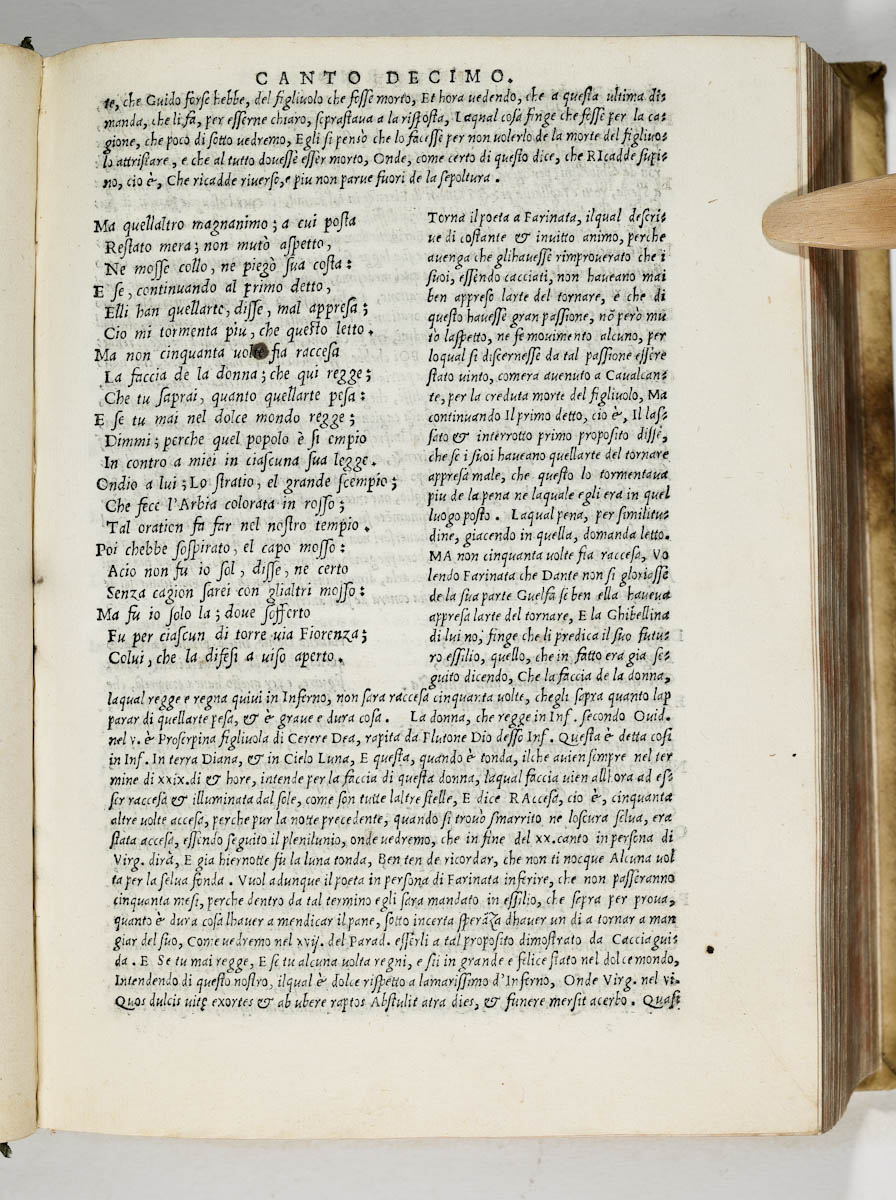 CANTO DECIMO.
te, che Guido forse hebbe, del figliuolo che fosse morto, Et hora uedendo, che a questa ultima di=
manda, che li fa, per esserne chiaro, soprastaua a la risposta, Laqual cosa finge che fosse per la ca=
gione, che poco di sotto uedremo, Egli si pensò che lo facesse per non uolerlo de la morte del figliuo=
lo attristare, e che al tutto douesse esser morto, Onde, come certo di questo dice, che RIcadde supi=
no, cio è, Che ricadde riuerso, e piu non parue fuori de la sepoltura.
Ma quellaltro magnanimo; a cui posta
Restato mera; non mutò aspetto,
Ne mosse collo, ne piegò sua costa:
E se, continuando al primo detto,
Elli han quellarte, disse, mal appresa;
Cio mi tormenta piu, che questo letto.
Ma non cinquanta uolte fia raccesa
La faccia de la donna; che qui regge;
Che tu saprai, quanto quellarte pesa:
E se tu mai nel dolce mondo regge;
Dimmi; perche quel popolo è si empio
In contro a miei in ciascuna sua legge.
Ondio a lui; Lo stratio, el grande scempio;
Che fece l'Arbia colorata in rosso;
Tal oration fa far nel nostro tempio.
Poi chebbe sospirato, el capo mosso:
Acio non fu io sol, disse, ne certo
Senza cagion sarei con glialtri mosso:
Ma fu io solo la; doue sofferto
Fu per ciascun di torre uia Fiorenza;
Colui, che la difesi a uiso aperto.
Torna il poeta a Farinata, ilqual descri=
ue di costante & inuitto animo, perche
auenga che glihauesse rimprouerato che i
suoi, essendo cacciati, non haueano mai
ben appreso larte del tornare, e che di
questo hauesse gran passione, nõ però mu
tò laspetto, ne fe mouimento alcuno, per
loqual si discernesse da tal passione essere
stato uinto, comera auenuto a Caualcan=
te, per la creduta morte del figliuolo, Ma
continuando Il primo detto, cio è, Il las=
sato & interrotto primo proposito disse,
che se i suoi haueano quellarte del tornare
appresa male, che questo lo tormentaua
piu de la pena ne laquale egli era in quel
luogo posto. Laqual pena, per similitu=
dine, giacendo in quella, domanda letto.
MA non cinquanta uolte fia raccesa, Vo
lendo Farinata che Dante non si gloriasse
de la sua parte Guelfa si ben ella haueua
appresa larte del tornare, E la Ghibellina
di lui no, finge che li predica il suo futu=
ro essilio, quello, che in fatto era gia se=
guito dicendo, Che la faccia de la donna,
laqual regge e regna quiui in Inferno, non sara raccesa cinquanta uolte, chegli sapra quanto lap
parar di quellarte pesa, & è graue e dura cosa. La donna, che regge in Inf. secondo Ouid.
nel v. è Proserpina figliuola di Cerere Dea, rapita da Plutone Dio desso Inf. Questa è detta cosi
in Inf. In terra Diana, & in Cielo Luna, E questa, quando è tonda, ilche auien sempre nel ter
mine di xxix.di & hore, intende per la faccia di questa donna, laqual faccia uien allhora ad es=
ser raccesa & illuminata dal sole, come son tutte laltre stelle, E dice RAccesa, cio è, cinquanta
altre uolte accesa, perche pur la notte precedente, quando si trouò smarrito ne loscura selua, era
stata accesa, essendo seguito il plenilunio, onde uedremo, che in fine del xx.canto in persona di
Virg. dirà, E gia hiernotte fu la luna tonda, Ben ten de ricordar, che non ti nocque Alcuna uol
ta per la selua fonda. Vuol adunque il poeta in persona di Farinata inferire, che non passeranno
cinquanta mesi, perche dentro da tal termino egli sara mandato in essilio, che sapra per proua,
quanto è dura cosa lhauer a mendicar il pane, sotto incerta sperãza dhauer un di a tornar a man
giar del suo, Come uedremo nel xvij. del Parad. esserli a tal proposito dimostrato da Cacciagui=
da. E Se tu mai regge, E se tu alcuna uolta regni, e sii in grande e felice stato nel dolce mondo,
Intendendo di questo nostro, ilqual è dolce rispetto a lamarissimo d'Inferno, Onde Virg. nel vi.
Quos dulcis uitę exortes & ab ubere raptos Abstulit atra dies, & funere mersit acerbo. Quasi